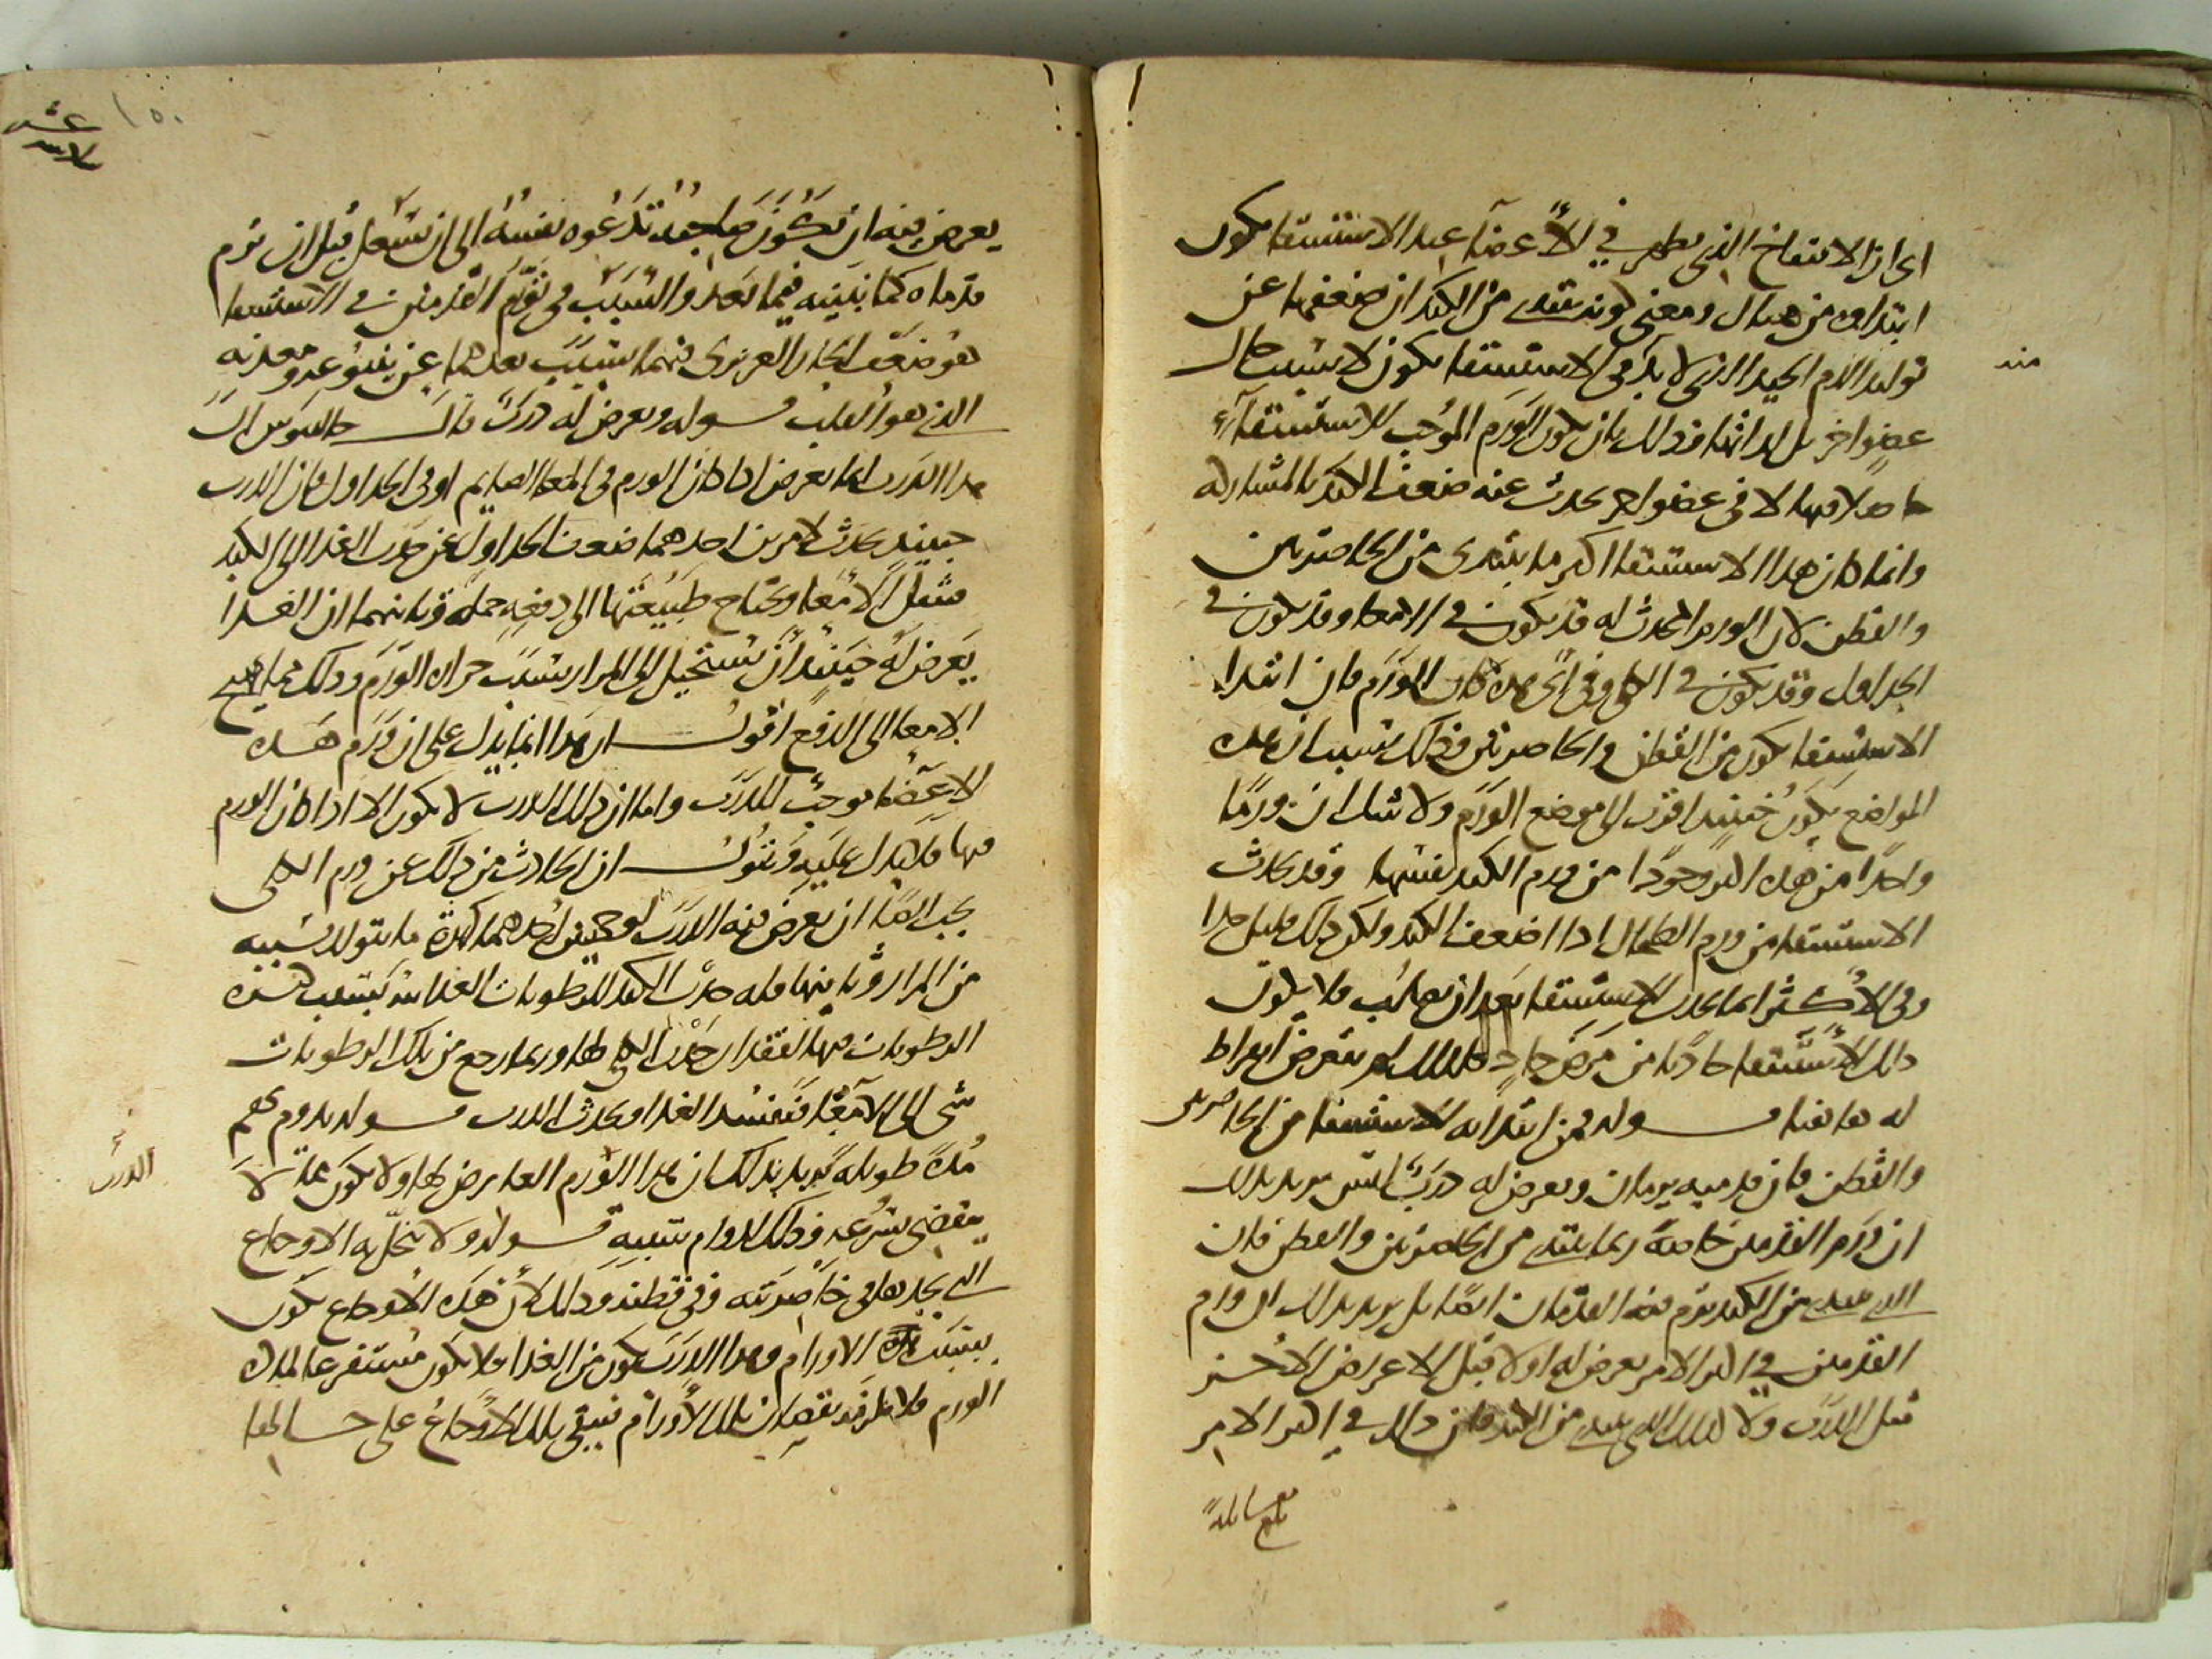 اى ان الانتفاخ الذى يظهر في الأعضآ عند الاستسقا يكون
ابتداوه من هناك ومعنى كونه يبتدى من الكبد ان ضعفها عن
توليد الدم الجيد الذى لا بد فى الاستسقا يكون لا بسبب حال
عضو اخر بل ابتداء وذلك بان يكون الورم الموجب للاستسقآء
حاصلا فيها لا فى عضو اخر يحدث عنه ضعف الكبد بالمشاركه
وانما كان هذا الاستسقا اكثر ما يبتدى من الخاصرتين
والقطن لان الورم المحدث له قد يكون في الامعا وقد يكون في
الجداول وقد يكون في الكلى وفى اى هذه كان الورم فان ابتدا
الاستسقا يكون من القطن والخاصرتين وذلك بسبب ان هذه
المواضع يكون حينيذ اقرب الى موضع الورم ولا شك ان ورما
واحدا من هذه اكثر وجودا من ورم الكبد نفسها وقد يحدث
الاستسقا من ورم الطحال اذا اضعف الكبد ولكن ذلك قليل جدا
وفى الاكثر انما يحدث الاستسقا بعد ان يصلب فلا يكون
ذلك الاستسقا حادثا من مرض حاد فلذلك لم يتعرض ابقراط
له هاهنا قوله فمن ابتدا به الاستسقا من الخاصرتين
والقطن فان قدميه يرمان ويعرض له ذرب ليس يريد بذلك
ان ورم القدمين خاصة بما يبتدى من الخاصرتين والقطن فان
الذى يبتدى من الكبد يرم فيه القدمان ايضا بل يريد بذلك ان ورم
القدمين في اكثر الامر يعرض له اولا قبل الاعراض الاخر
قبل الذرب ولا كذلك الذى يبتدى من الكبد فان ذلك في اكثر الامر
يعرض فيه ان يكون صاحبه تدعوه نفسه الى ان يسعل قبل ان ترم
قدماه كما نبينه فيما بعد والسبب فى تورم القدمين في الاستسقا
هو ضعف الحار الغريزى فيهما بسبب بعدهما عن ينبوعه ومعدنه
الذى هو القلب قوله ويعرض له ذرب قال جالينوس ان
هذا الذرب انما يعرض اذا كان الورم فى المعا الصايم او فى الجداول فان الذرب
حينيذ يحدث لامرين احدهما ضعف الجداول عن جذب الغدا الى الكبد
فتثقل الامعا وتحتاج طبيعتها الى دفعه جملة وثانيهما ان الغدا
يعرض له حينيذ ان يستحيل الى المرار بسبب حراره الورم وذلك مما يهيج
الامعا الى الدفع اقول ان هذا انما يدل على ان ورم هذه
الاعضا موجب للذرب واما ان ذلك الذرب لا يكون الا اذا كان الورم
فيها فلا يدل عليه ونقول ان الحادث من ذلك عن ورم الكلى
يجب ايضا ان يعرض فيه الذرب لوجهين احدهما كثرة ما يتولد بسببه
من المرار وثانيهما قله جذب الكبد للرطوبات الغذائية بسبب كثره
الرطوبات فيها لفقدان جذب الكلى لها وربما رجع من تلك الرطوبات
شى الى الامعا فتفسد الغدا ويحدث الذرب قوله يدوم بهم
مدة طويله يريد بذلك ان هذا الورم العارض لها ولا يكون مما لا
ينقضى بسرعه وذلك لدوام سببه قوله ولا ينحل به الاوجاع
التى يجدها فى خاصرتيه وفى قطنه وذلك لان هذه الاوجاع تكون
بسبب تلك الاورام وهذا الذرب يكون من الغدا فلا يكون مستفرغا لمادة
الورم فلا يلزمه نقصان تلك الاورام فيبقى تلك الاوجاع على حسب حالها
منه
بلغ مقابلة
الذرب
١٥٠